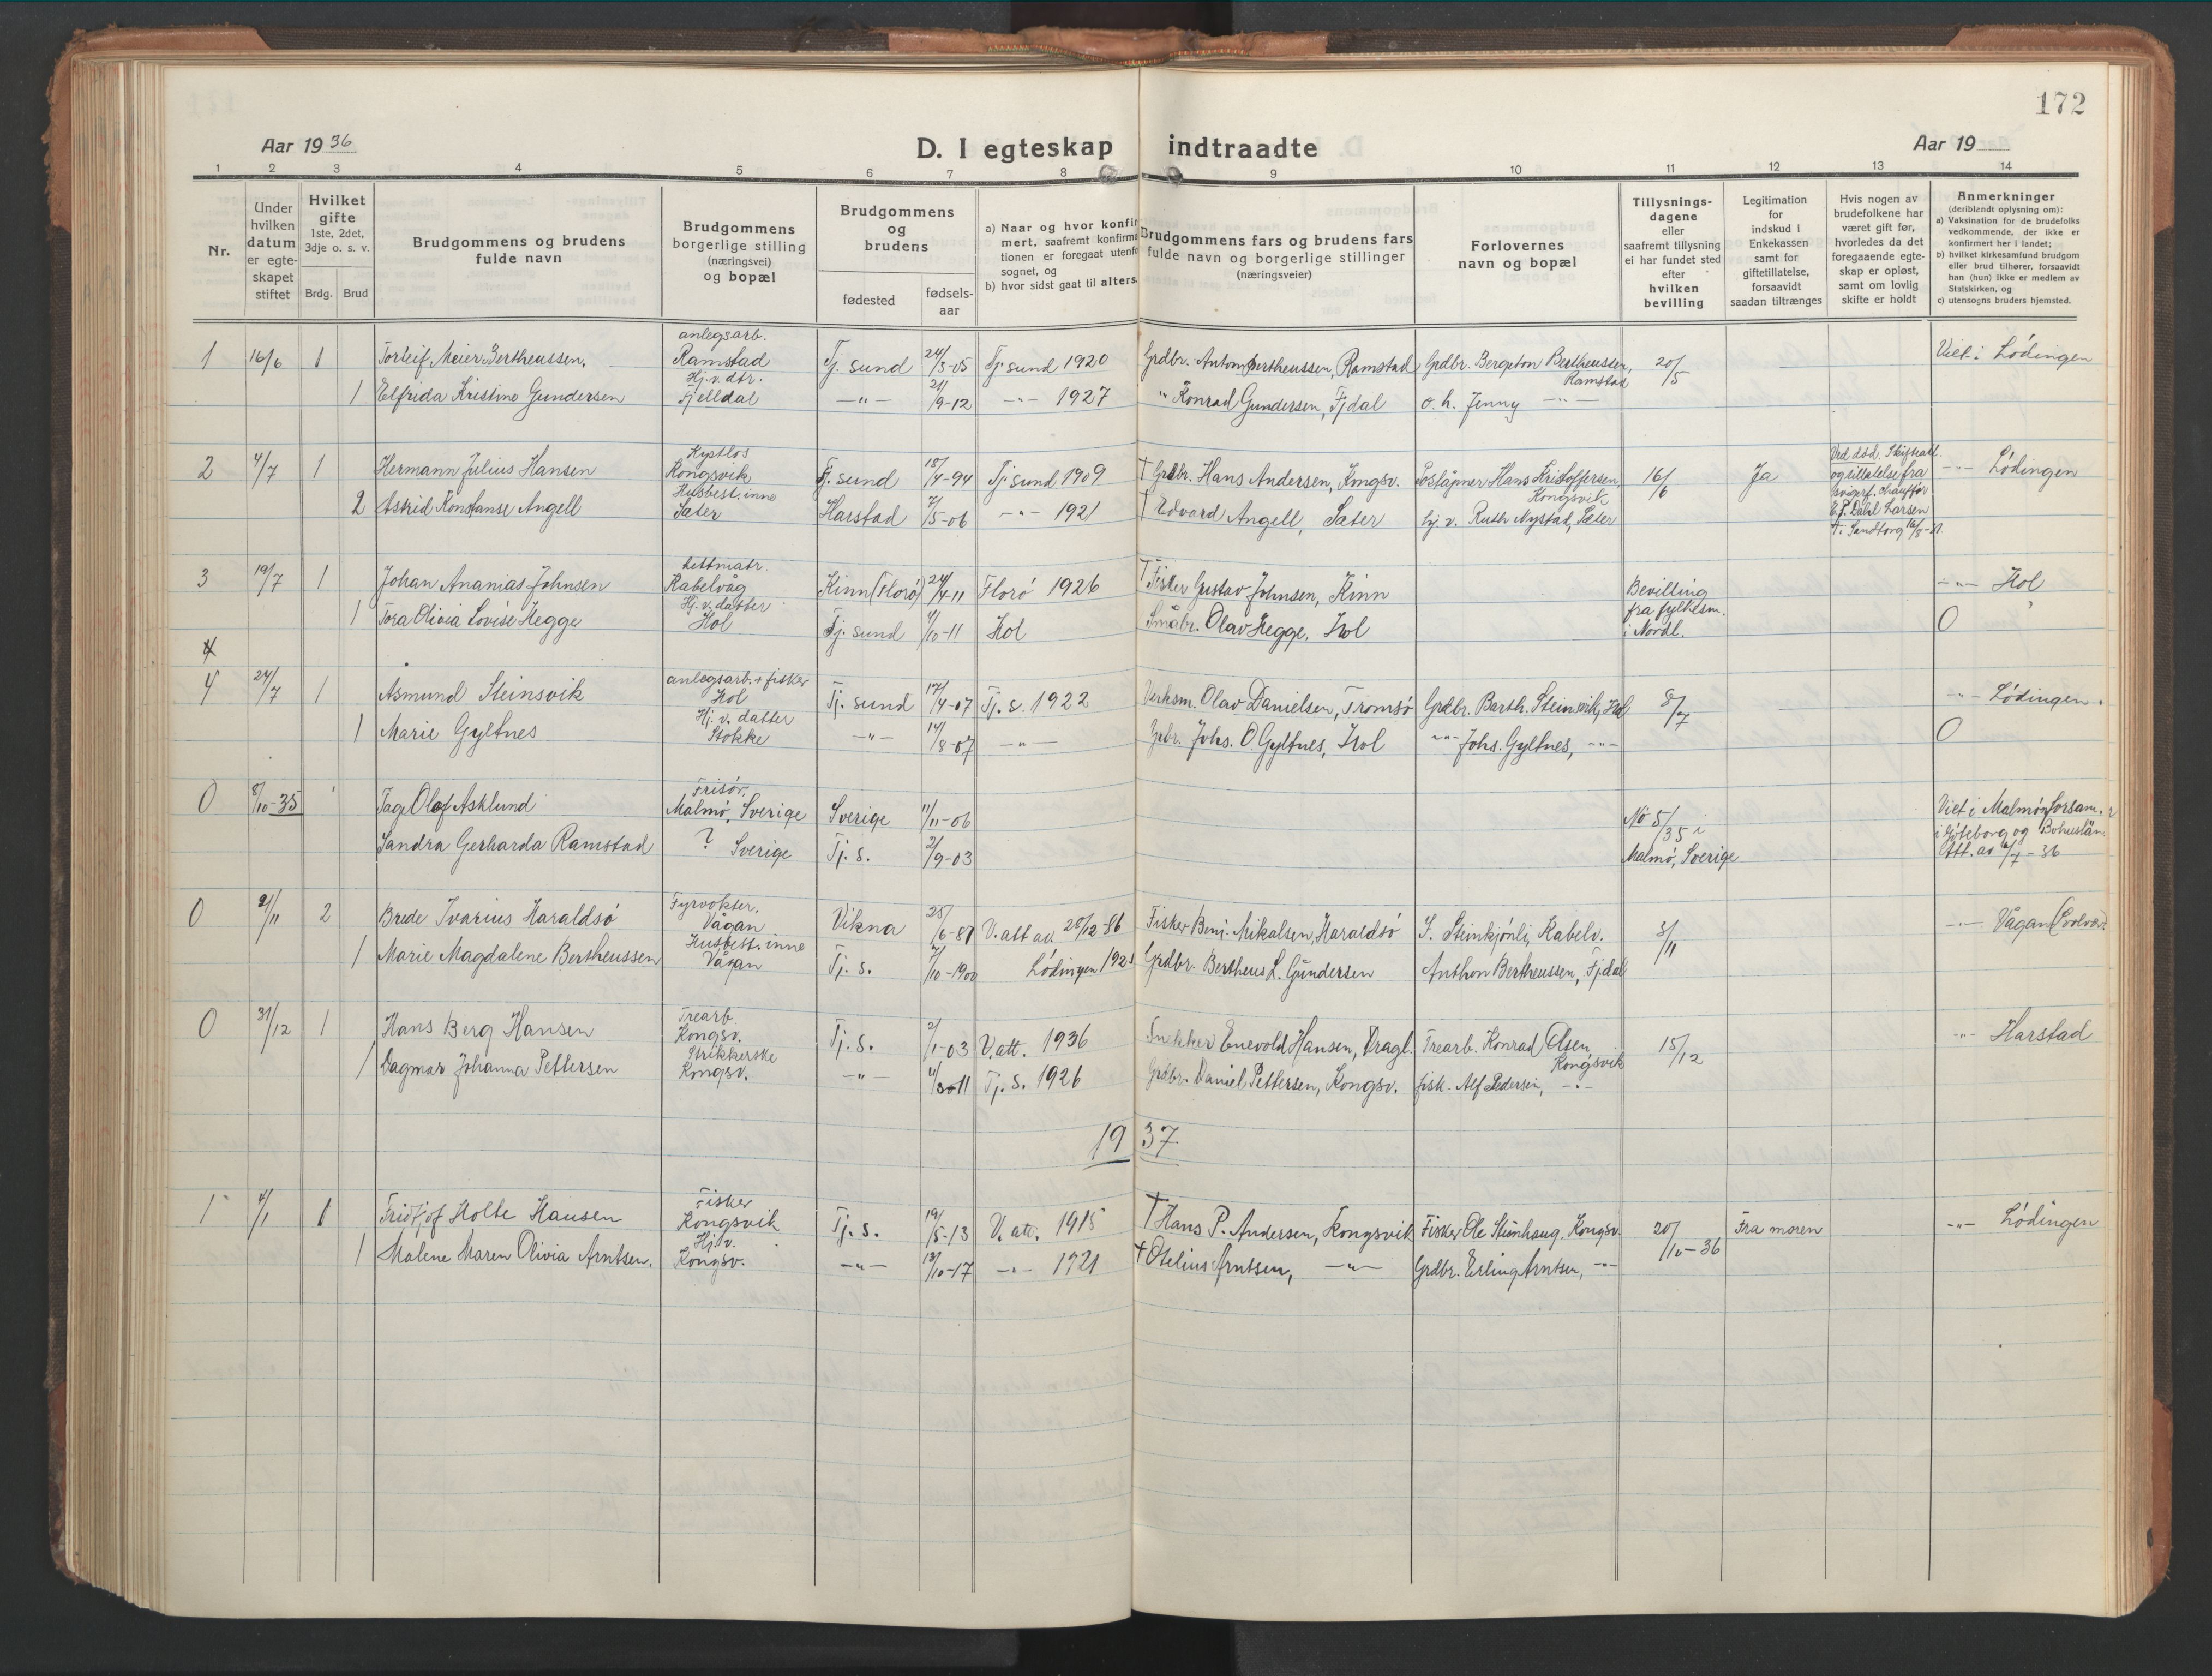 172
Aar 1936
D. I egteskap indtraadte
Aar 19
1 2 3 4 5 6 7 8 9 10 11 12 13 14
Nr.
Under hvilken datum er egteskapet stiftet
Hvilket gifte 1ste, 2det, 3dje o. s. v.
Brdg. Brud
Brudgommens og brudens fulde navn
Brudgommens borgerlige stilling (næringsvei) og bopæl
Brudgommens og brudens
fødested
fødselsaar
a) Naar og hvor konfir
mert, saafremt konfirma
tionen er foregaat utenfo
sognet, og
b) hvor sidst gaat til alters.
Brudgommens fars og brudens fars fulde navn og borgerlige stillinger (næringsveier)
Forlovernes navn og bopæl
Tillysningsdagene eller saafremt tillysning ei har fundet sted efter hvilken bevilling
Legitimation for indskud i Enkekassen samt for giftetillatelse, forsaavidt saadan tiltrænges
Hvis nogen av brudefolkene har været gift før, hvorledes da det foregaaende egteskap er opløst, samt om lovlig skifte er holdt
Anmerkninger
(deriblendt oplysning om):
a) Vaksination for de brudefolks vedkommende, der ikke er konfirmert her i landet;
b) hvilket kirkesamfund brudgom eller brud tilhører, forsaavidt han (hun) ikke er medlem av Statskirken, og
c) utensogns bruders hjemsted.
anlegsarb.
1 16/6 1 Torleif Meier Bertheussen, Ramstad Tj. sund 24/3-05 Tj. sund 1920 Grdbr. Anton Bertheussen, Ramstad Grdbr. Bergeton Bertheussen, Ramstad 20/5 Viet i Lødingen
Hj. v. dtr.
1 Elfrida Kristine Gundersen Fjelldal -"- 21/9-12 -"- 1927 " Konrad Gundersen, Fjdal o. h. Jenny -"-
2 4/7 1 Hermann Julius Hansen Kongsvik Tj. sund 18/4-94 Tj. sund 1909 † Grdbr. Hans Andersen, Kongsv. Poståpner Hans Kristoffersen Kongsvik 16/6 Ja -"- Lødingen
Husbest.inne
2 Astrid Konstanse Angell Sæter Harstad 7/5-06 -"- 1921 † Edvard Angell, Sæter hj. v. Ruth Nystad, Sæter
Ved død. Skifteatt.
og tillatelse fra
E. P. Dahl Larsen
† i Sandtorg 16/8-31.
3 19/7 1 Johan Ananias Johnsen Kabelvåg Kinn (Florø) 24/4 11 Florø 1926 † Fisker Gustav Johnsen, Kinn Bevilling fra fylkesm. i Nordl. -"- Hol
Hj. v. datter
1 Tora Olivia Lovise Hegge Hol Tj. sund 4/10-11 Hol Småbr. Olav Hegge, Hol 0
4
anlegsarb. + fisker
4 24/7 1 Åsmund Steinsvik Hol Tj. sund 17/4-07 Tj. s. 1922 Verksm. Olav Danielsen, Tromsø Grdbr. Barth. Steinsvik, Hol 8/7 -"- Lødingen.
Hj. v. datter
1 Marie Gyltnes Stokke -"- 14/8-07 -"- Grbr. Johs. O Gyltnes, Hol -"- Johs. Gyltnes, -"- 0
Frisør.
0 8/10-35 Tage Olof Asklund Malmø, Sverige Sverige 11/11-06 No 5/35 i Malmø, Sverige
Sandra Gerharda Ramstad ? Sverige Tj. s. 2/9-03
Viet i Malmø
i Gøteborg og Bohuslän
Att. av 2/7-36
Fyrvokter.
0 21/11 2 Brede Ivarius Haraldsø Vågan Vikna 25/6-81 V. att av 28/12-86 Fisker Benj. Mikalsen, Haraldsø S. Steinkjønli, Kabelv. 3/11 -"- Vågan (Svolvær)
Husbest.inne
1 Marie Magdalene Bertheussen Vågan Tj. s. 7/10-1900 Lødingen 192 Grdbr. Bertheus L. Gundersen Anthon Bertheussen, Fjdal
Trearb.
0 31/12 1 Hans Berg Hansen Kongsv. Tj. s. 2/1-03 V. att. 1936 Snekker Enevold Hansen, Dragl. Trearb. Konrad Olsen Kongsvik 15/12 -"- Harstad
Strikkerske
1 Dagmar Johanna Pettersen Kongsv. -"- Tj. s. 1926 Grdbr. Daniel Pettersen, Kongsv. fisk. Alf Pedersen, -"-
1937
Fisker
1 4/1 1 Fridtjof Holte Hansen Kongsvik Tj. s. 19/5-13 V. att. 1915 † Hans P. Andersen, Kongsvik Fisker Ole Steinhaug, Kongsv. 20/10-36 Fra moren -"- Lødingen
Hj. v.
1 Malene Maren Olivia Arntsen, Kongsv. -"- 13/10-17 -"- 1721 † Otelius Arntsen, -"- Grdbr. Erling Arntsen, -"-